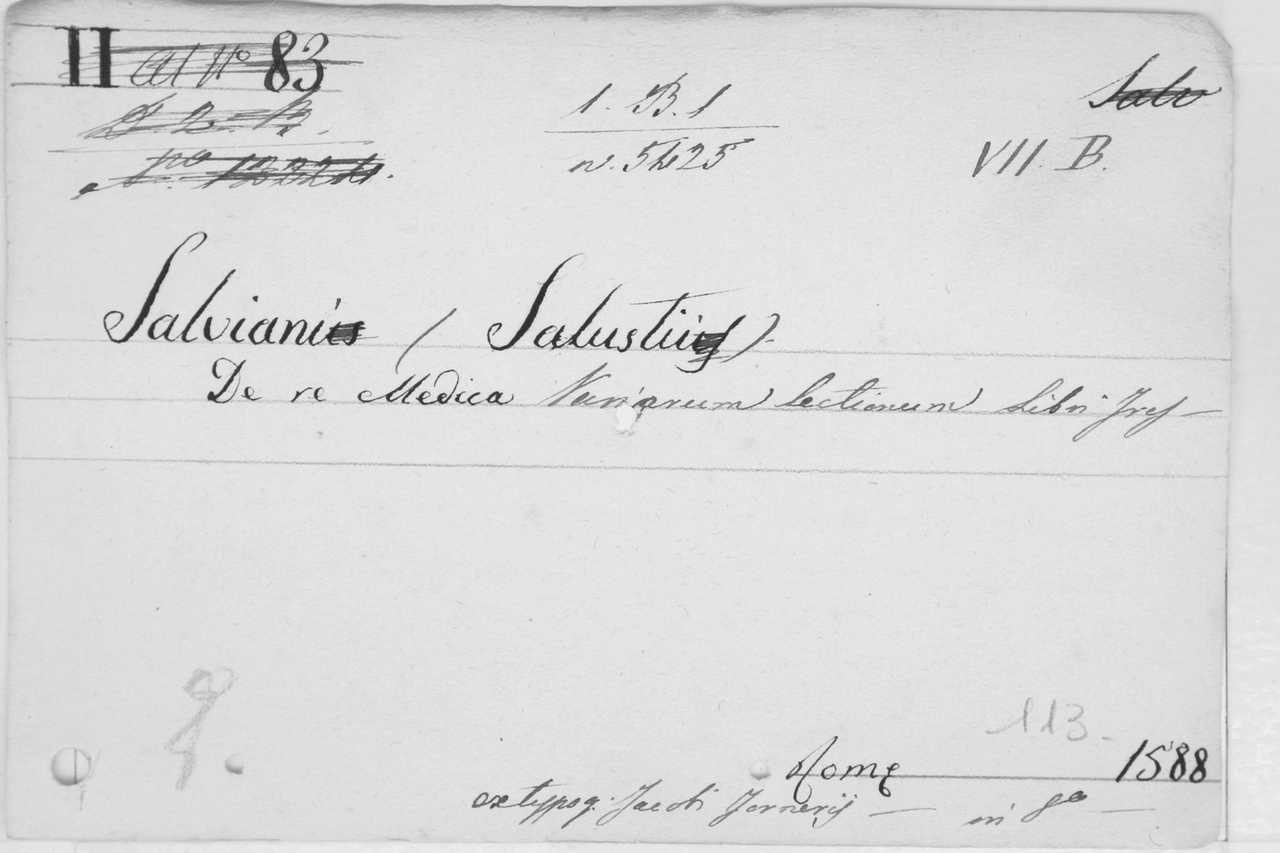 II al No 83
1. B. 1
n. 5425
Salv
VII. B.
Salviani (Salustii)
De re Medica Variarum lectionum Libri Tres —
113.
Romę 1588
ex typog. Jacobi Tornerij — in 8o —